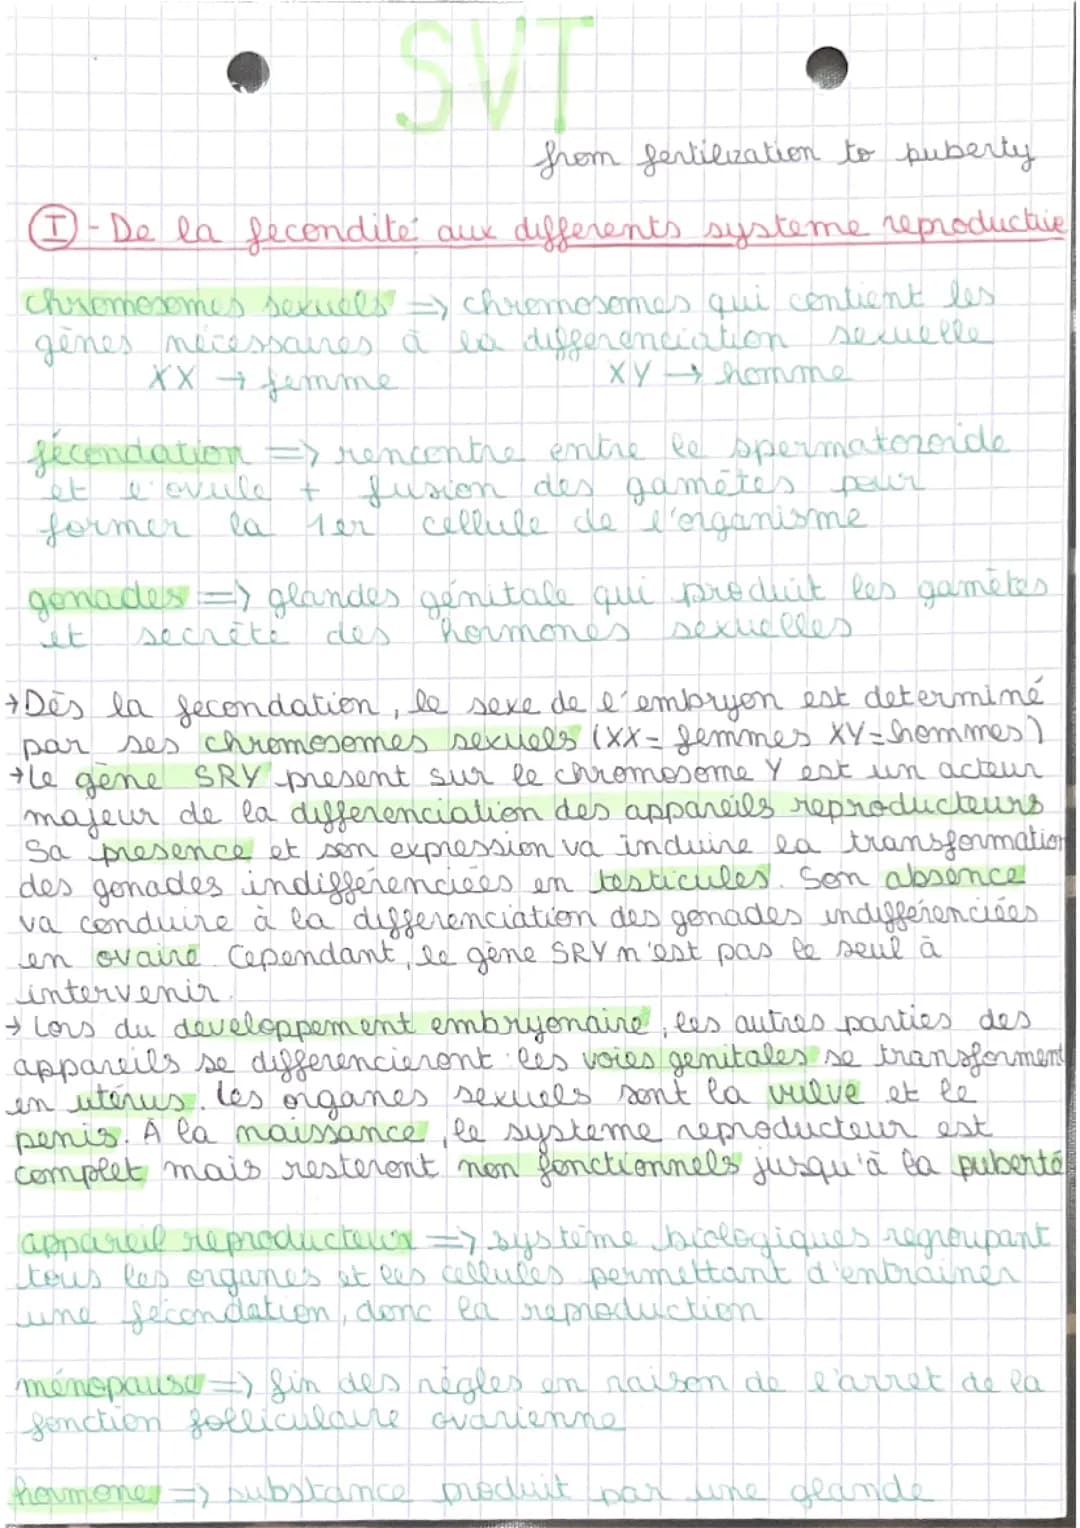 SVT
from fertilization to puberty
I - De la fecondité aux differents systeme reproductive
chromosomes sexuels => chromosomes qui contient les
gènes nécessaires à la differenciation sexuelle
XX → femme XY → homme
fécondation => rencontre entre le spermatozoide
et l'ovule + fusion des gamètes pour
former la 1er cellule de l'organisme
gonades => glandes génitale qui produit les gamètes
et secrète des hormones sexuelles
→ Dès la fecondation, le sexe de l'embryon est determiné
par ses chromosomes sexuels (XX= femmes XY= hommes)
→ Le gène SRY present sur le chromosome Y est un acteur
majeur de la differenciation des appareils reproducteurs
Sa presence et son expression va induire la transformation
des gonades indifférenciées en testicules. Son absence
va conduire à la differenciation des gonades indifférenciées
en ovaire. Cependant, le gène SRY n'est pas le seul à
intervenir.
→ Lors du developpement embryonaire, les autres parties des
appareils se differencieront : les voies genitales se transforment
en utérus. les organes sexuels sont la vulve et le
penis. A la naissance, le systeme reproducteur est
complet mais resteront non fonctionnels jusqu'à la puberté
appareil reproducteur => système biologiques regroupant
tous les organes et les cellules permettant d'entrainer
une fécondation, donc la reproduction
ménopause => fin des règles en raison de l'arret de la
fonction folliculaire ovarienne
hormone => substance produit par une glande